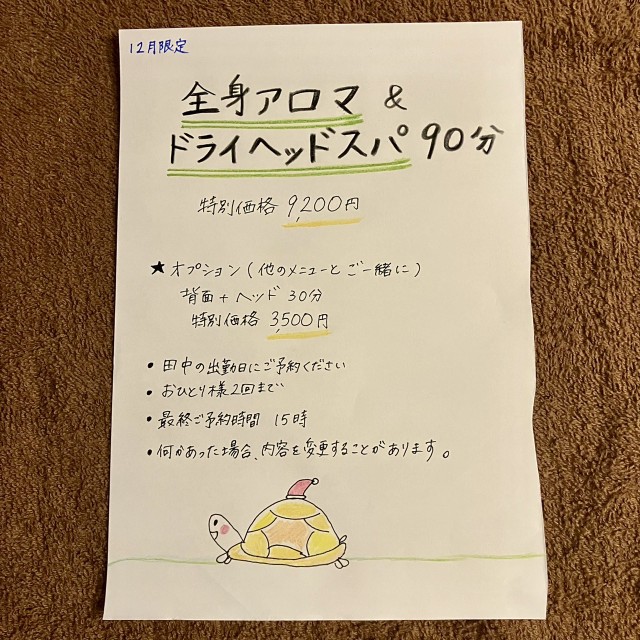 12月限定
全身アロマ &
ドライヘッドスパ 90分
特別価格 9,200円
★オプション(他のメニューとご一緒に)
背面+ヘッド 30分
特別価格 3,500円
• 田中の出勤日にご予約ください
• おひとり様2回まで
• 最終ご予約時間 15時
• 何かあった場合、内容を変更することがあります。